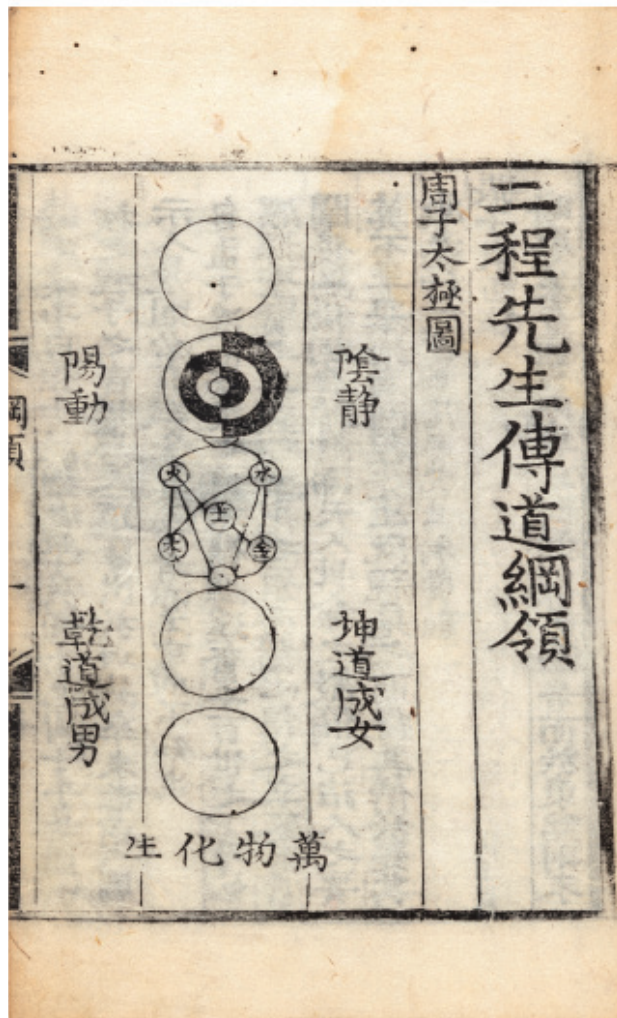 二程先生傳道綱領
周子太極圖
陰静
坤道成女
水
火
土
金
木
陽動
乾道成男
萬物化生
綱領
一